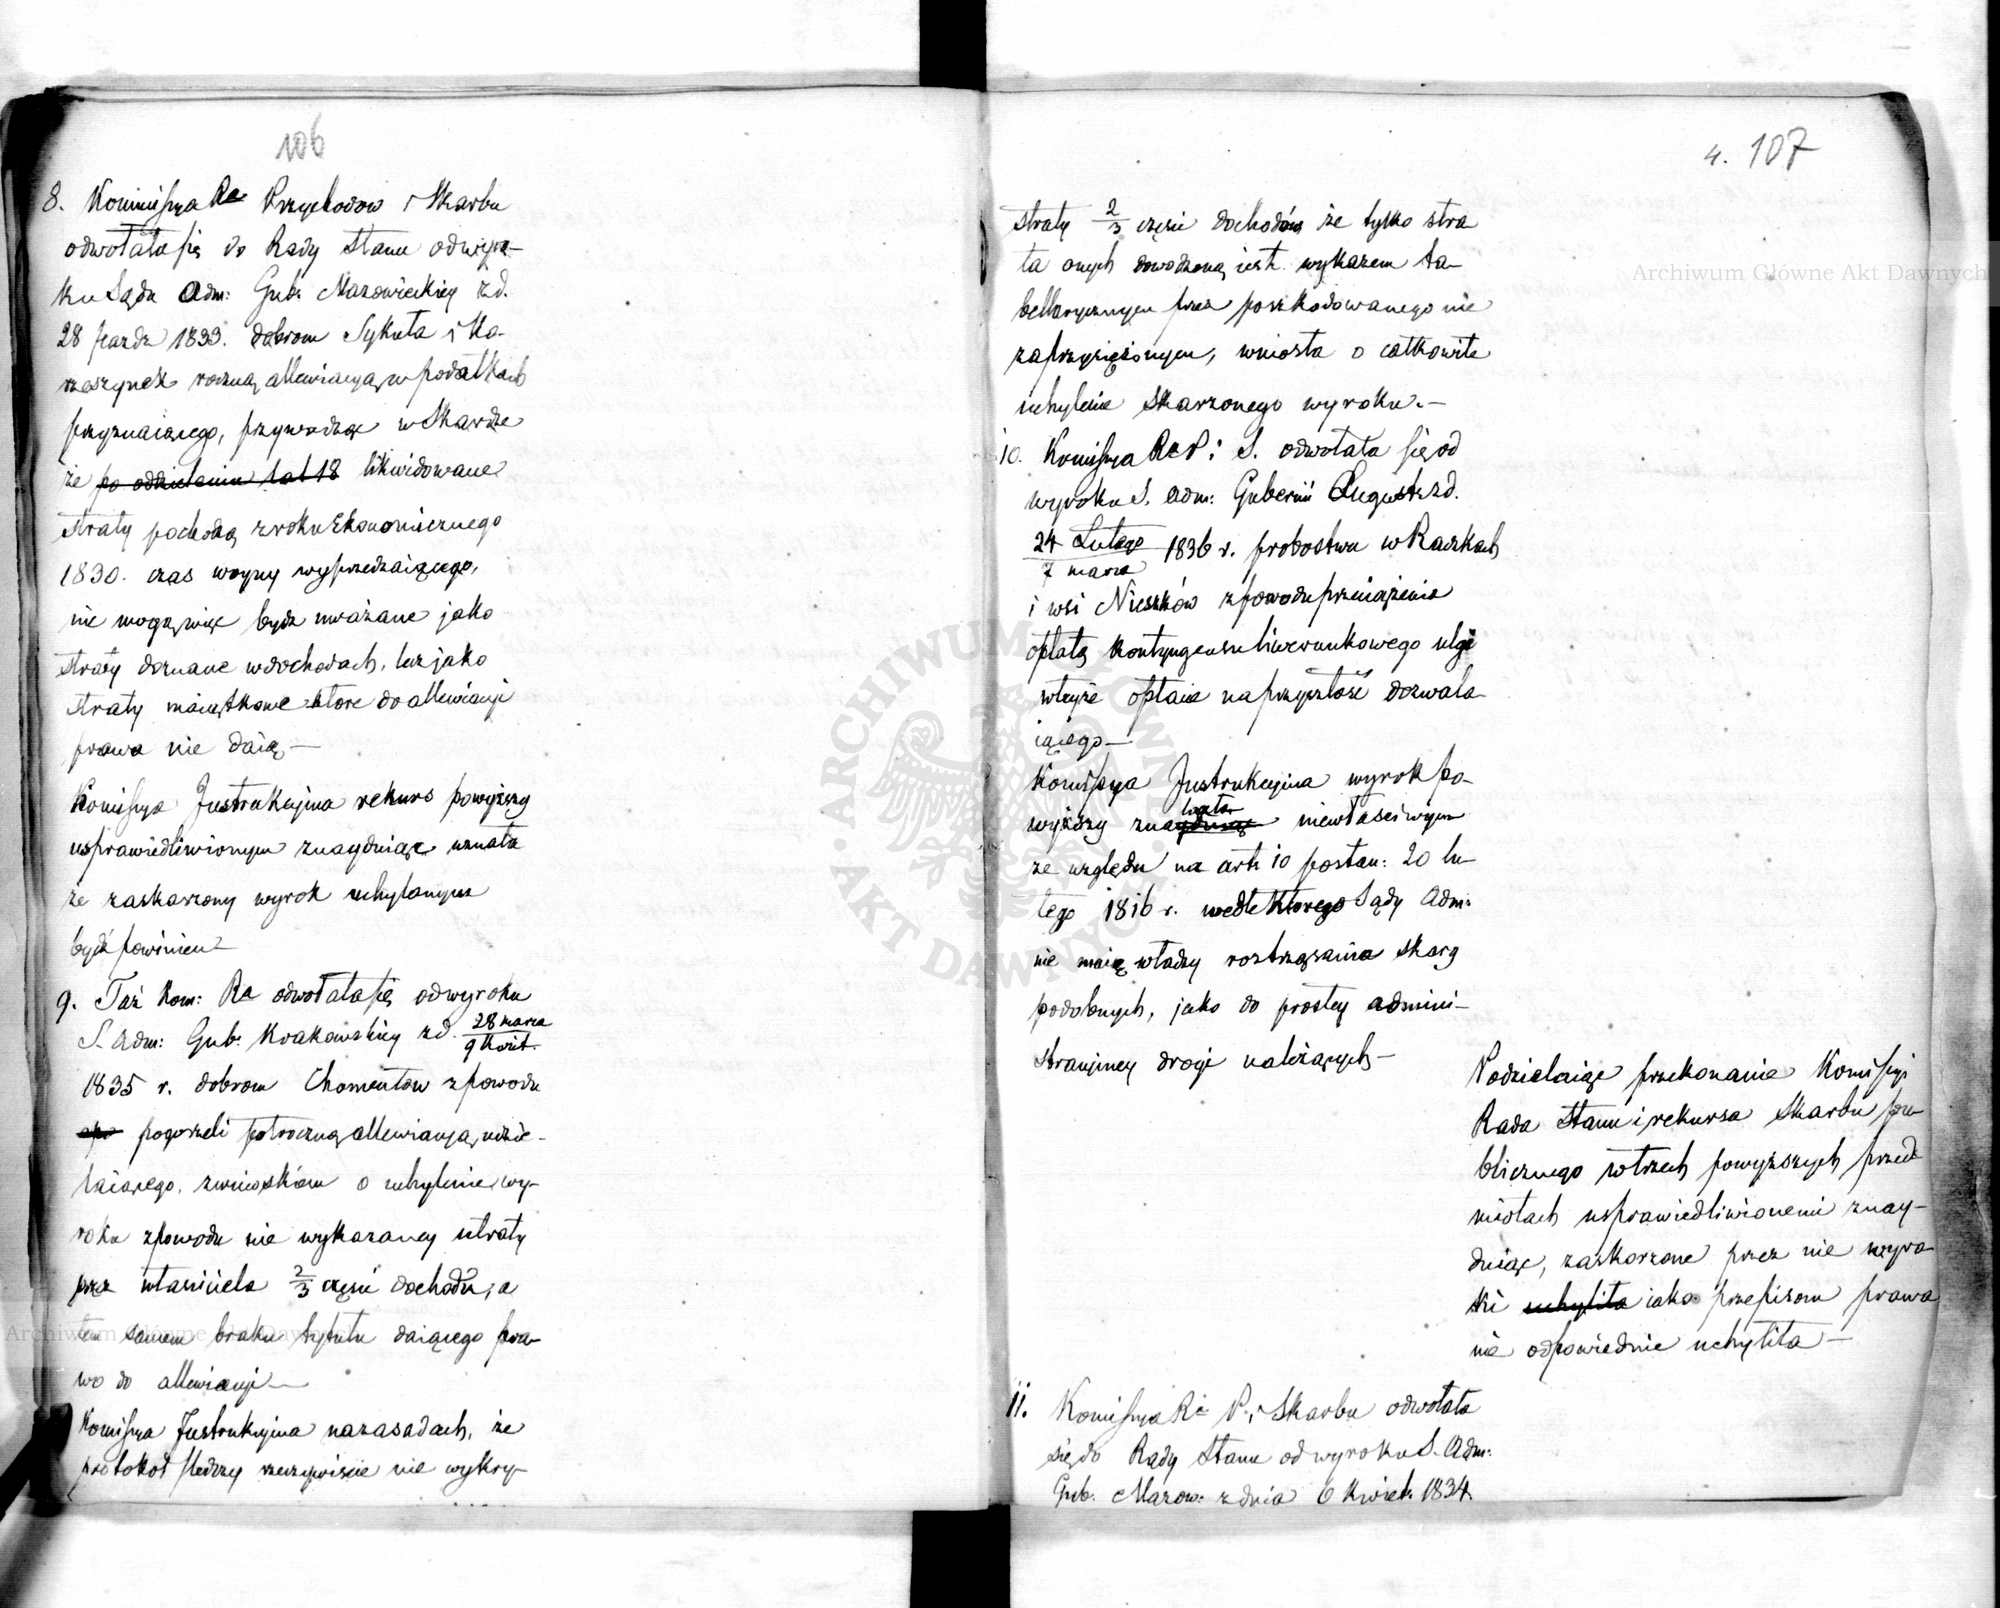 106
8. Kommissya Rz Przychodow i Skarbu
odwołała się do Rady Stanu od wyro-
ku Sądu Adm: Gub: Mazowieckiey z d.
28 Pazdz 1833. dobrom Sykuła i Ko-
rzeszynek roczną allewiacyą w podatkach
przyznaiącego, przywodząc w Skardze
że po oddzieleniu lat 18 likwidowane
straty pochodzą z roku Ekonomicznego
1830. czas woyny wyprzedzaiącego,
nie mogą więc bydz uważane jako
straty doznane w dochodach, lecz jako
straty maiątkowe ktore do allewiacyi
prawa nie daią —
Komissya Instrukcyina rekurs powyższy
usprawiedliwionym znayduiąc uznała
że zaskarzony wyrok uchylonym
bydź powinien —
9. Taż Kom: Rz odwołała się od wyroku
S. Adm: Gub: Krakowskiey z d. 28 marca
9 Kwiet.
1835 r. dobrom Chomentów z powodu
pogorzeli połroczną allewiacyą udzie-
laiącego, z wnioskiem o uchylenie wy-
roku z powodu nie wykazaney utraty
przez własciciela 2/3 części dochodu, a
tem samem braku tytułu daiącego pra-
wo do allewiacyi —
Komissya Instrukcyina na zasadach, że
protokoł sledczy rzeczywiscie nie wykry-
4. 107
straty 2/3 części dochodów że tylko stra
ta onych dowodzoną iest wykazem ta-
bellarycznym przez poszkodowanego nie
zaprzysiężonym, wniosła o całkowite
uchylenie skarzonego wyroku. —
10. Komissya Rz P: i S. odwołała się od
wyroku S. Adm: Gubernii Augusts. z d.
24 Lutego
7 marca 1836 r. probostwu w Raczkach
i wsi Nieszków z powodu przeciążenia
opłatą kontyngensu liwerunkowego ulgę
w teyże opłacie na przyszłość dozwala-
iącego —
Komissya Instrukcyina wyrok po-
wyższy znayduiąc niewłaściwym
ze względu na art: 10 postan: 20 lu-
tego 1816 r. wedle ktorego Sądy Adm:
nie maią władzy roztrząsania skarg
podobnych, jako do prostey admini-
stracyiney drogi należących —
Podzielaiąc przekonanie Komissyi
Rada Stanu i rekursa Skarbu pu-
blicznego w trzech powyższych przed
miotach usprawiedliwionemi znay-
duiąc, zaskarzone przez nie wyro-
ki uchyliła iako przepisom prawa
nie odpowiednie uchyliła —
11. Komissya Rz P. i Skarbu odwołała
się do Rady Stanu od wyroku S. Adm:
Gub. Mazow: z dnia 6 Kwiet. 1834.
Archiwum Główne Akt Dawnych
ARCHIWUM GŁÓWNE AKT DAWNYCH
Archiwum Główne Akt Dawnych